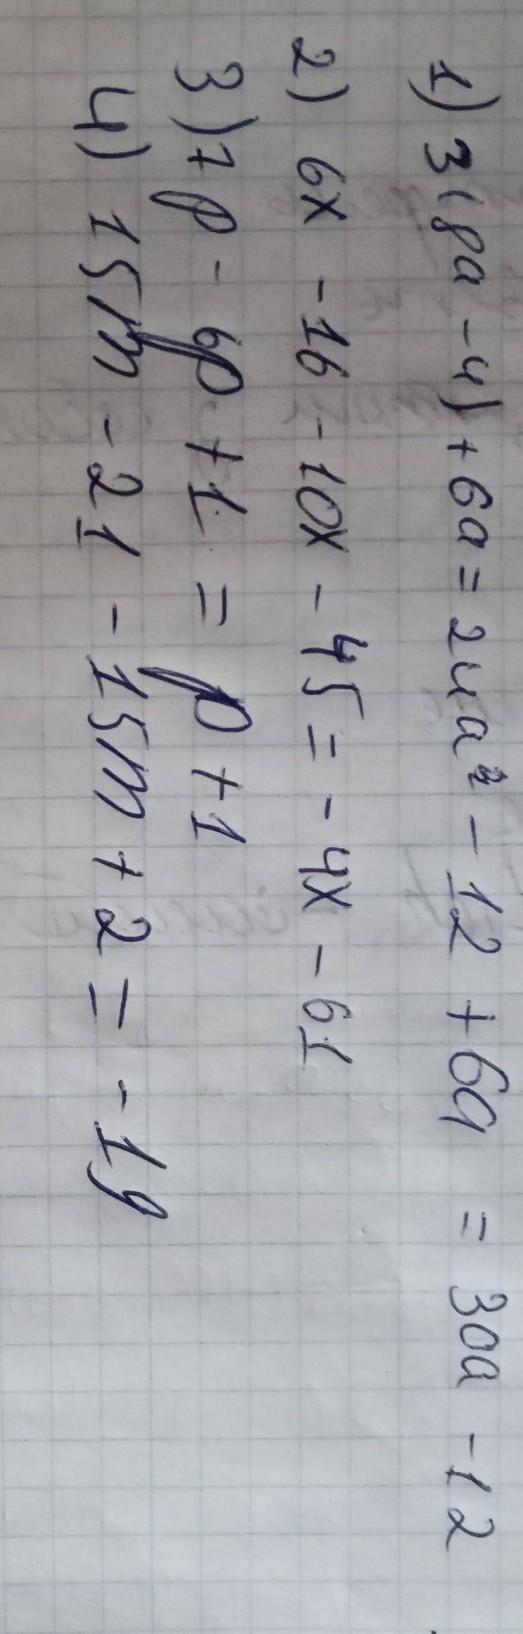 1) 3(8a - 4) + 6a = 24a² - 12 + 6a = 30a - 12
2) 6x - 16 - 10x - 45 = -4x - 61
3) 7p - 6p + 1 = p + 1
4) 15m - 21 - 15m + 2 = -19